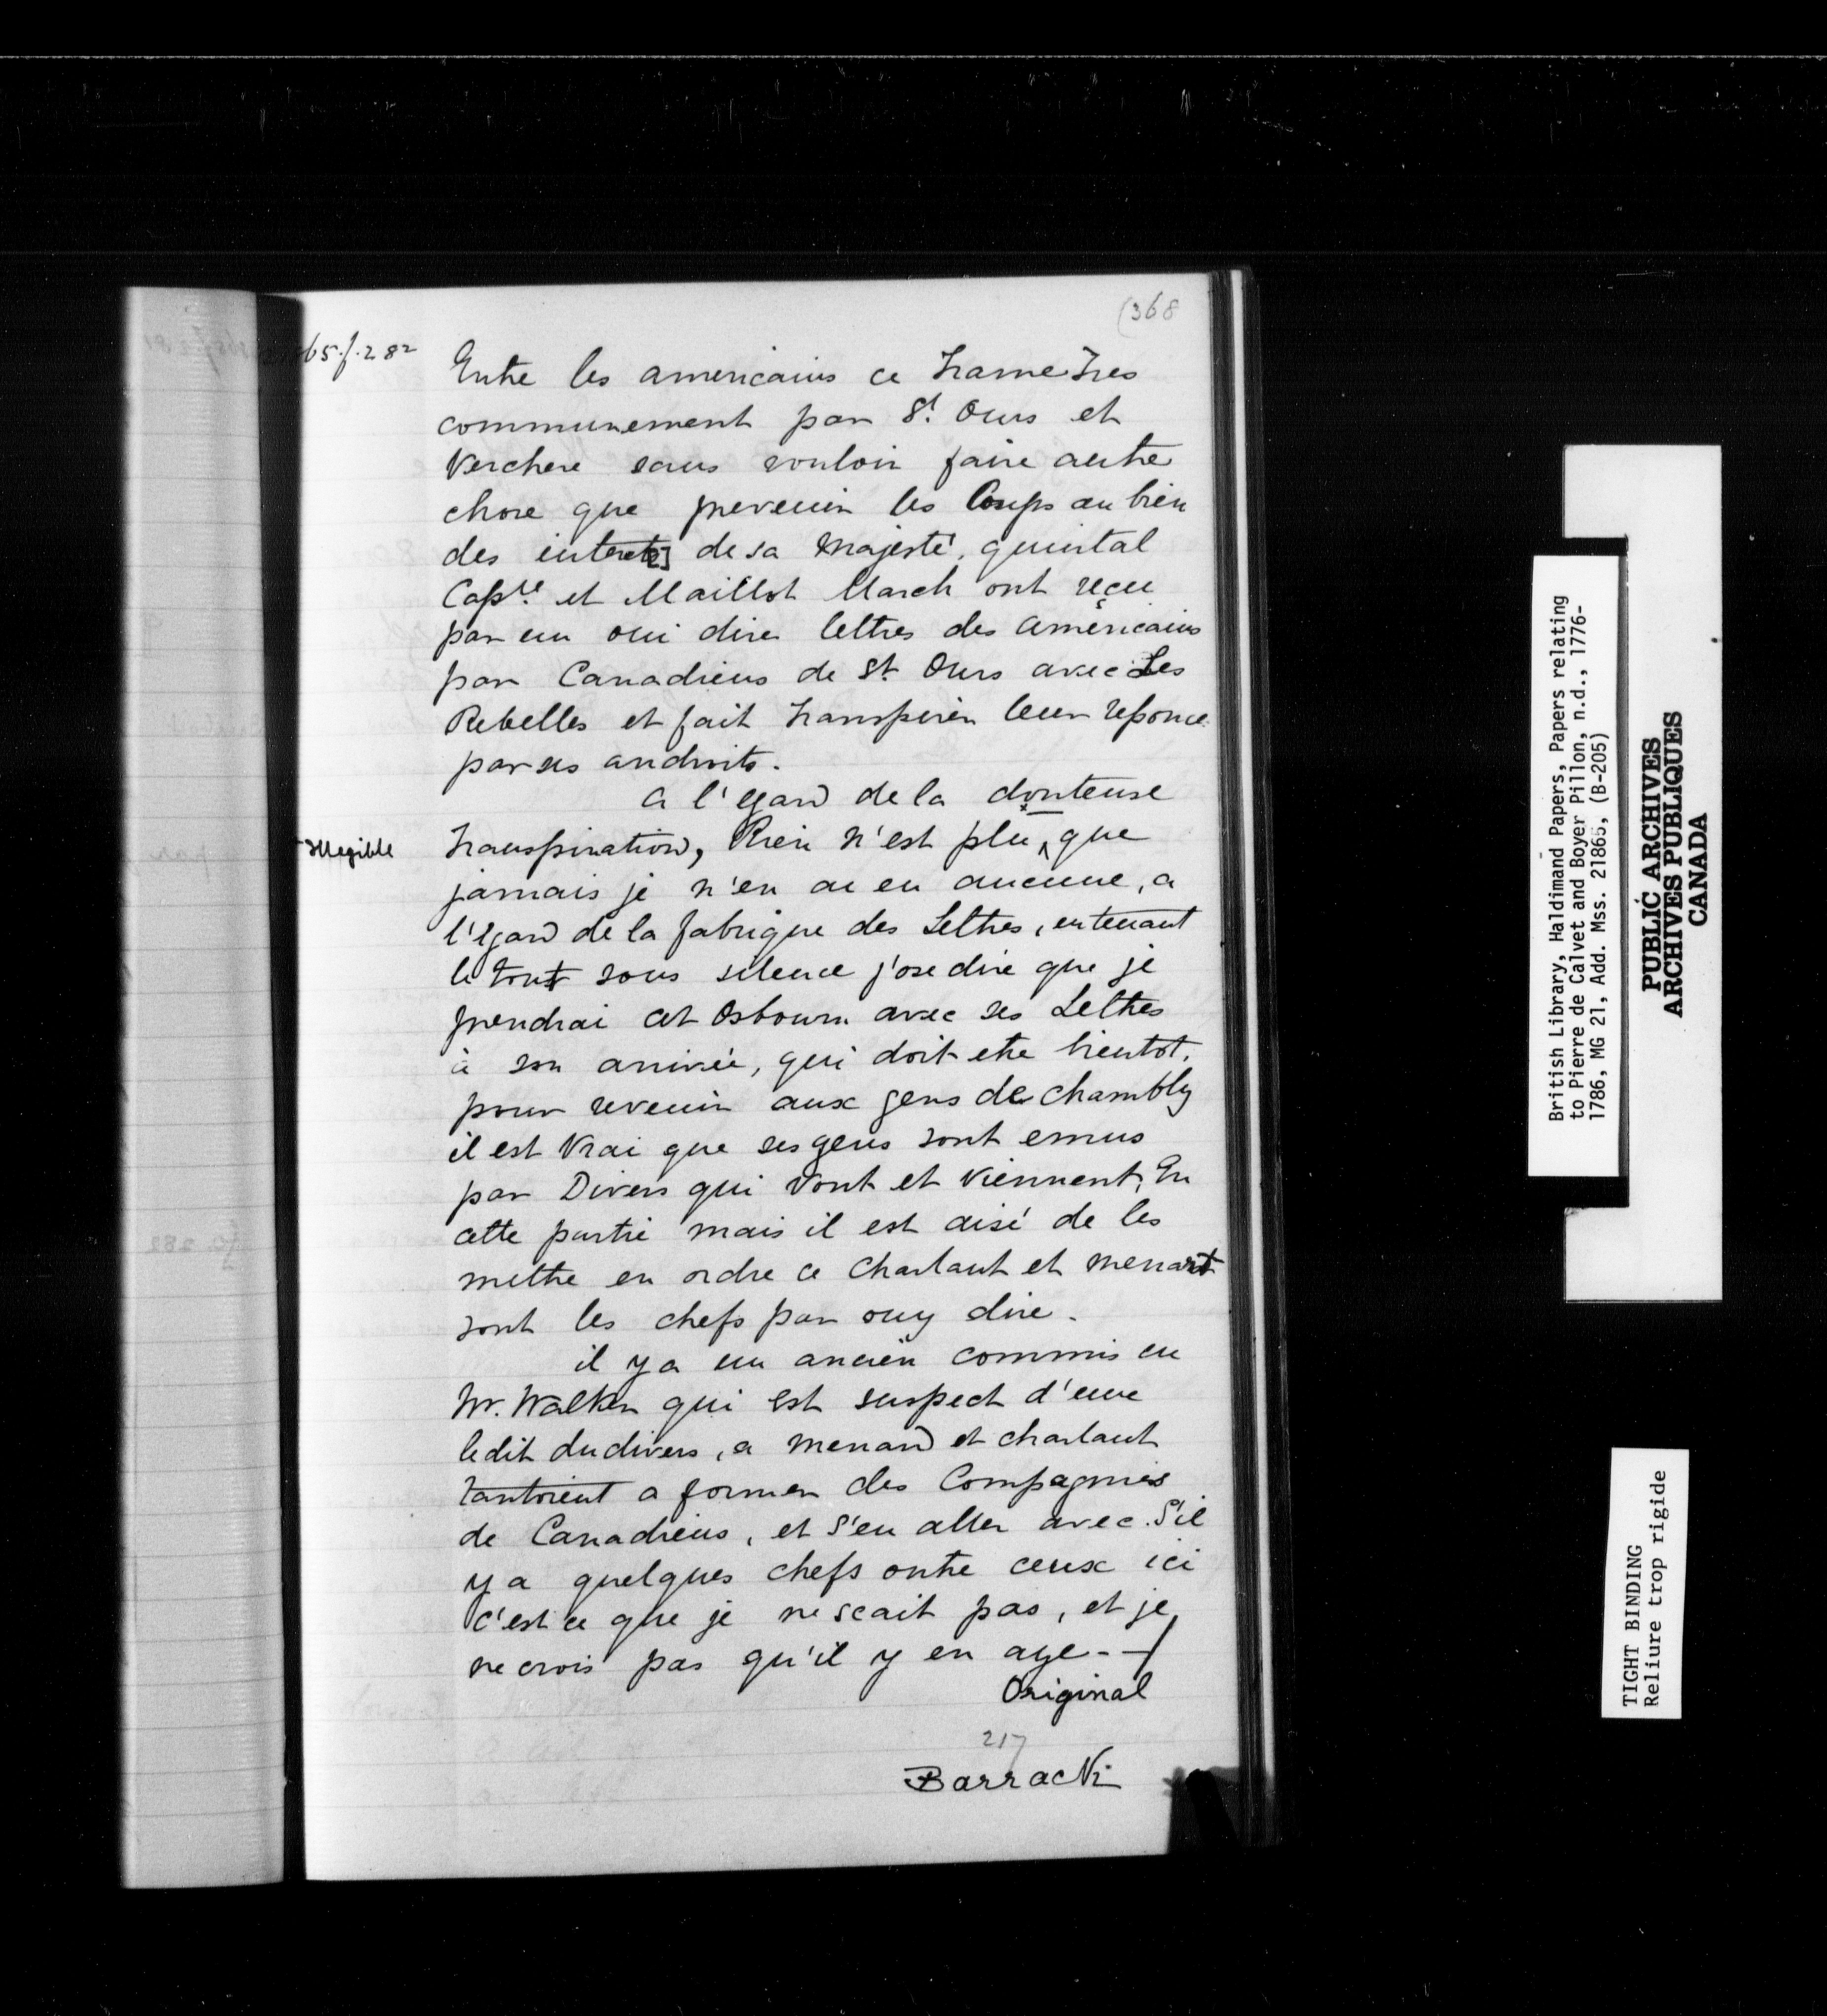 (368
65.f.282
Entre les americains ce trame tres
communement par St. Ours et
Verchere sans vouloir faire autre
chose que prevenir les Coups au bien
des interets] de sa Majesté, quintal
Capne. et Maillot March ont reçu
par un oui dire lettres des américains
par Canadiens de St Ours avec Les
Rebelles et fait transpirer leur reponce
par ses androits.
a l'egard de la douteuse
Illegible
transpiration, Rien n'est plu que
jamais je n'en ai eu aucune, a
l'egard de la fabrique des Lettres, en tenant
le tout sous silence j'ose dire que je
prendrai cet Osbourn avec ses Lettres
à son arrivée, qui doit etre bientot.
pour revenir aux gens de chambly
il est Vrai que ses gens sont emus
par Divers qui vont et viennent, En
cette partie mais il est aisé de les
mettre en ordre ce charlaut et menart
sont les chefs par ouy dire.
il y a un ancien commis eu
Mr. Walker qui est suspect d'eure
ledit dudivers, a menard et charlaut
tantoient a former des Compagnies
de Canadiens, et s'en aller avec. S'il
y a quelques chefs ontre ceux ici
c'est ce que je ne scait pas, et je
ne crois pas qu'il y en aye - -/
Original
217
Barrack
British Library, Haldimand Papers, Papers relating
to Pierre de Calvet and Boyer Pillon, n.d., 1776-
1786, MG 21, Add. Mss. 21865, (B-205)
PUBLIC ARCHIVES
ARCHIVES PUBLIQUES
CANADA
TIGHT BINDING
Reliure trop rigide